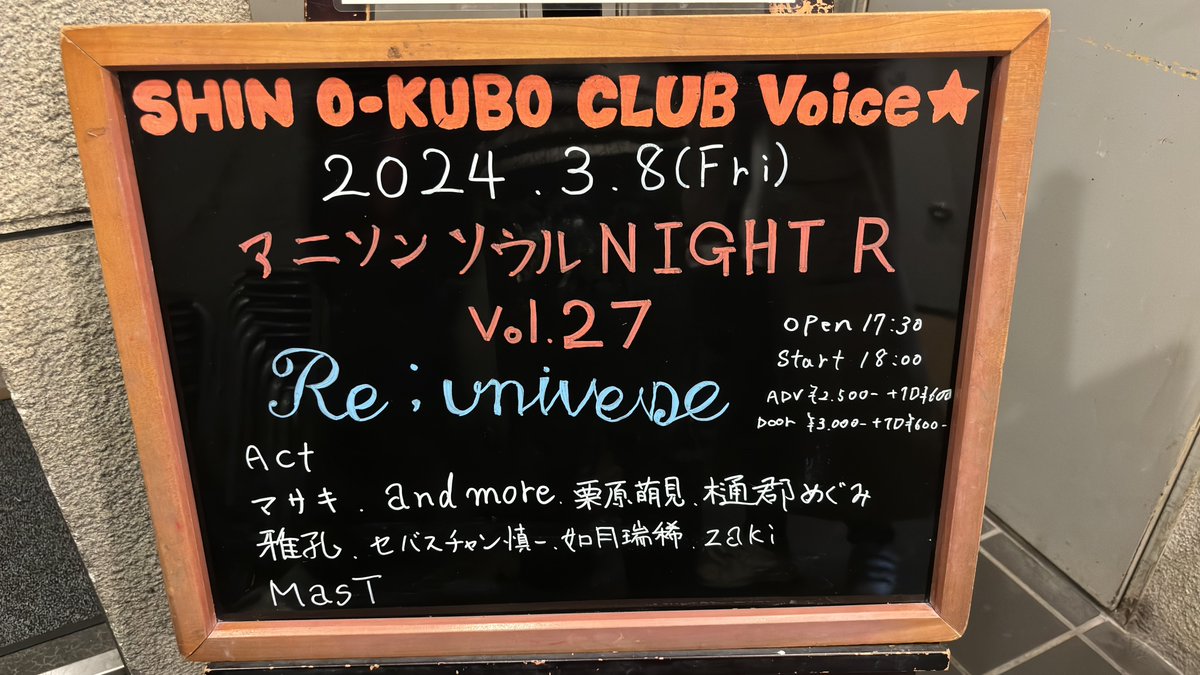 SHIN O-KUBO CLUB Voice★
2024.3.8(Fri)
アニソンソウルNIGHT R
Vol.27
Re;univese
open 17:30
Start 18:00
ADV ¥2.500- +1D¥600
Door ¥3.000- +1D¥600-
Act
マサキ. and more. 栗原萌見. 樋郡めぐみ
雅孔. セバスチャン慎一. 如月瑞稀. zaki
MasT